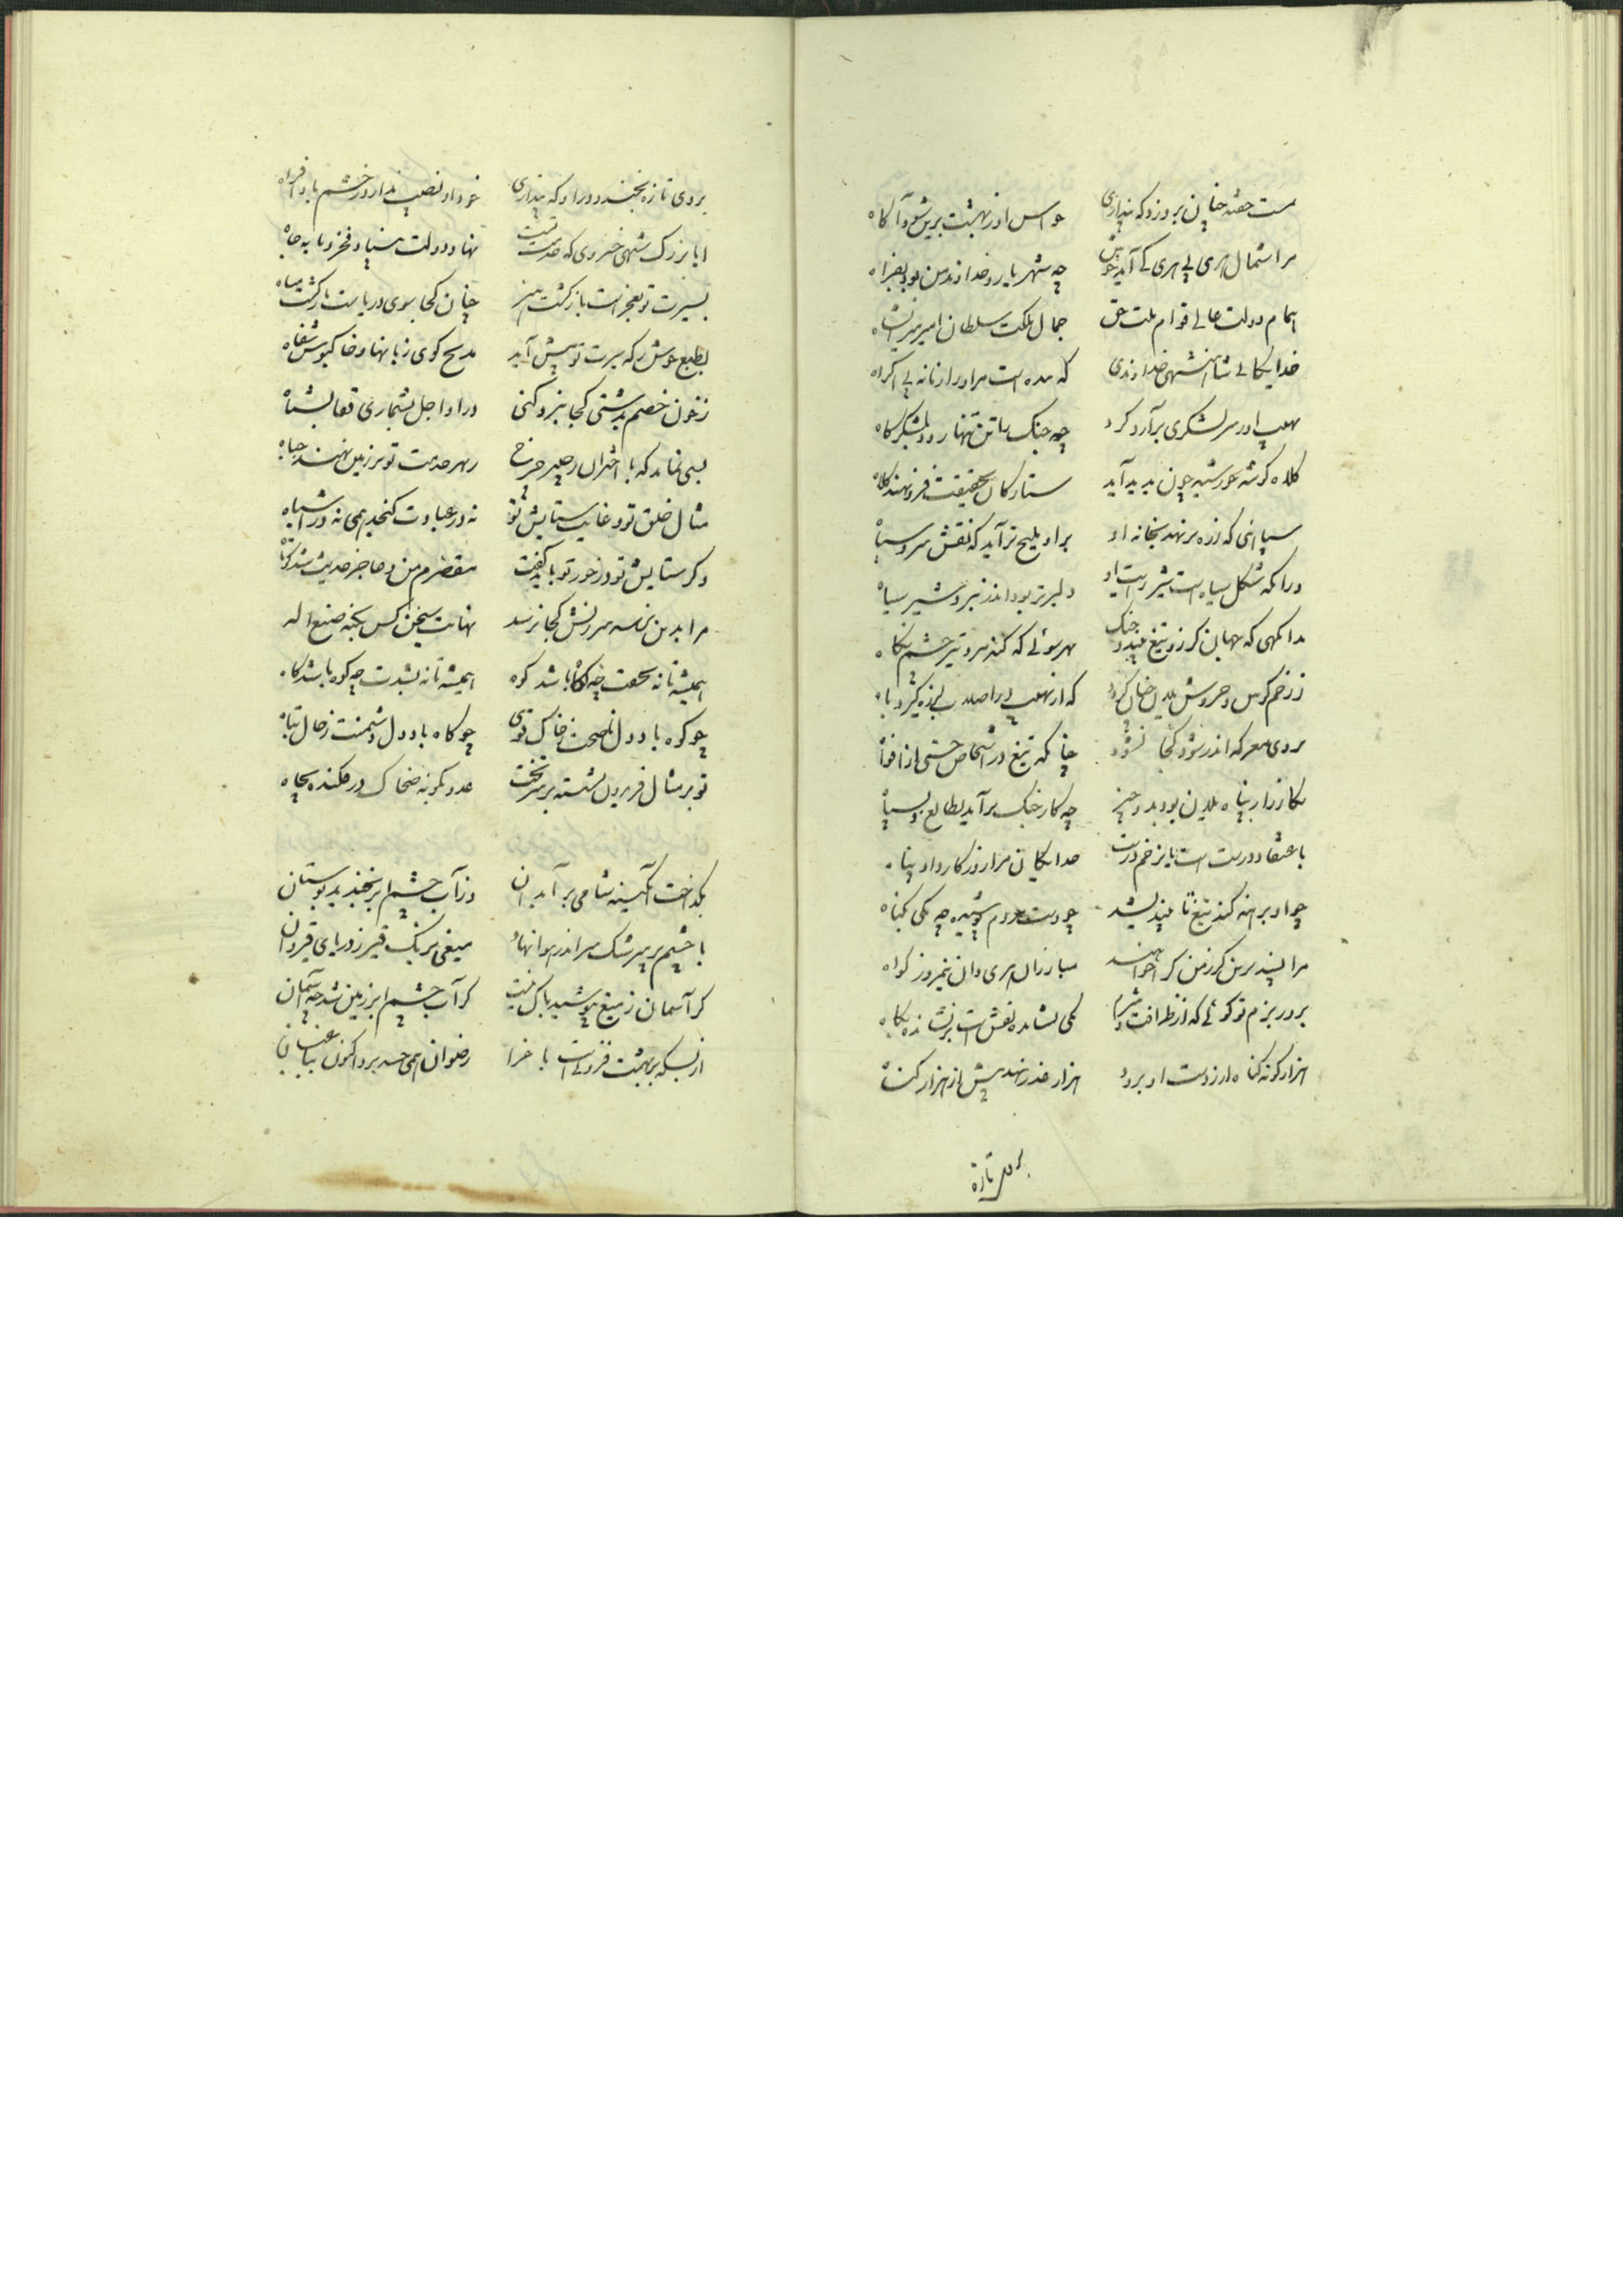 مست خفته چنان بروزد که پنداری حواس او ز بهشت برین شود آگاه
مرا شمال هری بی هری کی آید خوش چه شهریار و خداوند من بود بهراه
همام دولت عالی قوام ملت حق جمال ملکت سلطان امیر میرانشاه
خدایگانی شاهنشهی خداوندی که بنده است مر او را زمانه بی اکراه
نهیب او ز سر لشکری برآرد گرد چه جنگ با تن تنها رود بلشکرگاه
کلاه گوشه خورشید چون پدید آید ستارگان بحقیقت فرو نهند کلاه
سپاهئی که زره بر نهد بخانه او بر او ملیح تر آید که نقش سرو سیاه
ورا که شکل سیاه است شیر رایت او دلیرتر بود اندر نبرد شیر سیاه
بدانگهی که میان گرز و تیغ بندد جنگ بهر سوئی که کند مرد تیز چشم نگاه
ز زخم کوس و خروش یلان چنان گردد که از نهیب
بروی معرکه اندر شود کجا نشود چنانکه تیغ در اشخاص جستی از افواه
بکارزار پناه یلان بود بدو چیز چه کار جنگ برآید بطالع و بسپاه
باعتقاد درست است یا بزخم درست خدایگان مرا روزگار داد پناه
چو او برهنه کند تیغ تا میندیشد چو دست مردم شوریده چه یکی چه پناه
مرا پسند بدین گر ز من گر خواهند مبارزان هری دان نیمروز گواه
بروز بزم تو گوئی که از ظرافت و شرم یکی نشانده نقش است بر نشانده بگاه
هزار گونه گناه ار ز دست او برود هزار عذر نهد پیش از هزار گناه
بروی تازه
بروی تازه بخندد ورا و که پنداری خود او نصیب ندارد ز خشم باد افراه
ایا بزرگ شهی خسروی که خدمت تست نهاد دولت بنیاد فخر و مایه جاه
بسیرت تو بفخر است بازگشت هنر چنان کجا سوی دریاست بازگشت میاه
بطبع خوش که سیرت تو پیش آید مدیح گوی زبانها و خاکبوس شفاه
ز خون خصم بدشتی کجا نبرد کنی در او اجل بشماری قفا بشناه
بسی نماند که با اختران رخیر چرخ ز بهر خدمت تو بر زمین نهند جباه
مثال خلق تو و غایت ستایش تو نه در عبادت گنجد همی نه در اشباه
و گر ستایش تو در خور تو باید گفت مقصرم من و عاجز حدیث شد کوتاه
مرا بدین نرسد سرزنش کجا نرسد نهایت سخن کس بکنه صنع اله
همیشه تا نه بخفت چه کاه باشد کوه همیشه تا نه بشدت چه کوه باشد کاه
چو کوه باد دل ناصحت ز خاک قوی چو کاه باد دل دشمنت ز حال تباه
تو بر مثال فریدون نشسته بر سر تخت عدو بگونه ضحاک در فکنده بچاه
بگداخت آبگینه شامی بر آبدان وز آب چشم ابر بخندید بوستان
با چشم پر سرشک سر اندر هوا نهاد میغی برنگ قیر ز دریای قیروان
گر آسمان ز میغ بپوشید باک نیست کز آب چشم ابر زمین شد چه آسمان
از بسکه بر بهشت فزونی است باغ را رضوان همی حسد برد اکنون بباغبان